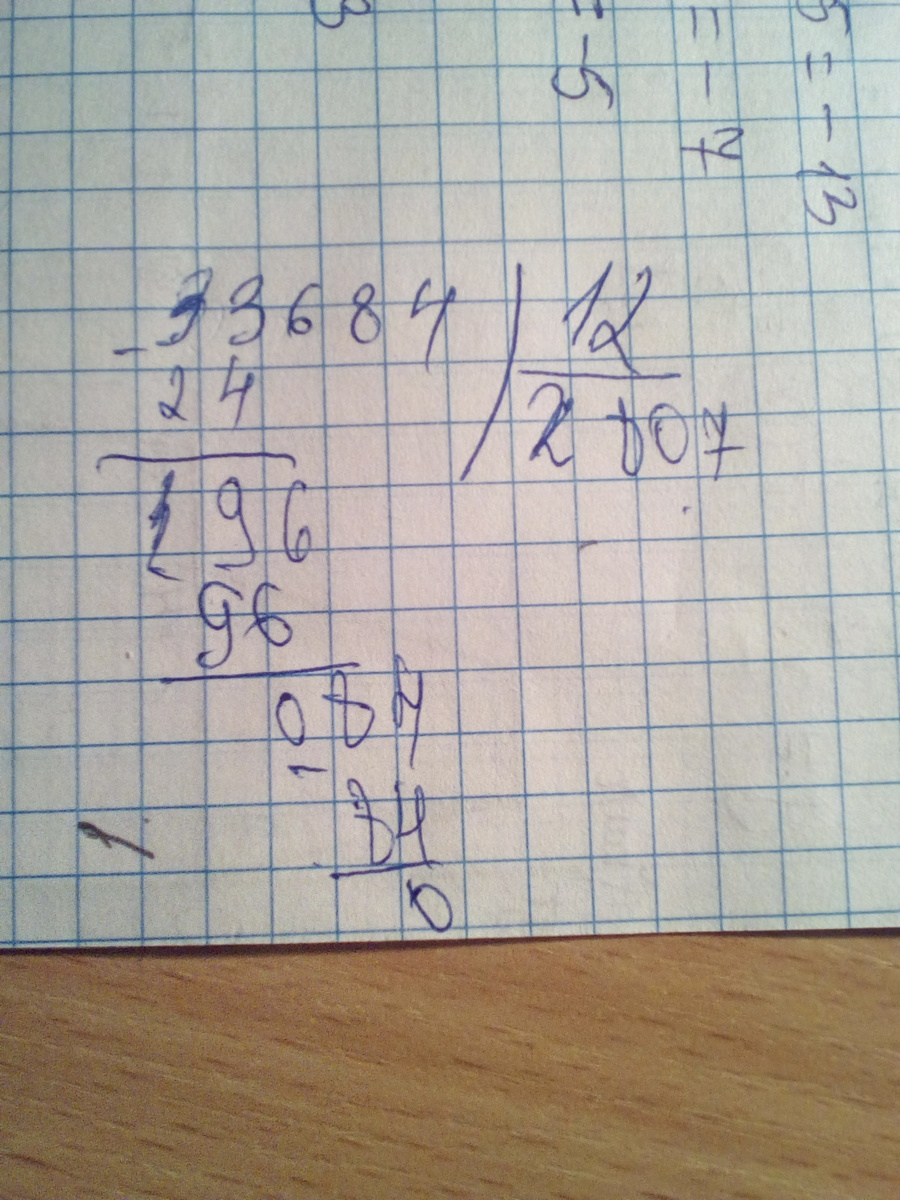 3
= -5
= - 7
5 = - 13
- 33684 12
24 2807
196
96
084
-
84
0
1